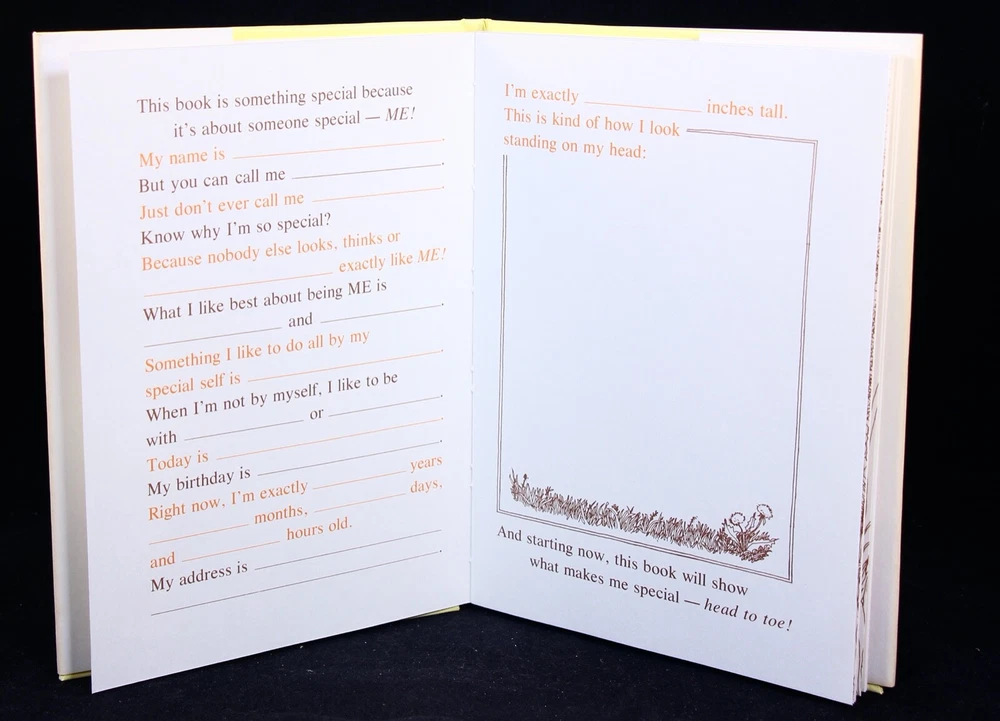 This book is something special because
it's about someone special — ME!
My name is ____________.
But you can call me ____________.
Just don't ever call me ____________.
Know why I'm so special?
Because nobody else looks, thinks or
____________ exactly like ME!
What I like best about being ME is
____________ and ____________.
Something I like to do all by my
special self is ____________.
When I'm not by myself, I like to be
with ____________ or ____________.
Today is ____________.
My birthday is ____________.
Right now, I'm exactly ____________ years
____________ months, ____________ days,
and ____________ hours old.
My address is ____________
____________.
I'm exactly ____________ inches tall.
This is kind of how I look
standing on my head:
And starting now, this book will show
what makes me special — head to toe!